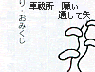 車祓所
願い
通して矢
り おみくじ